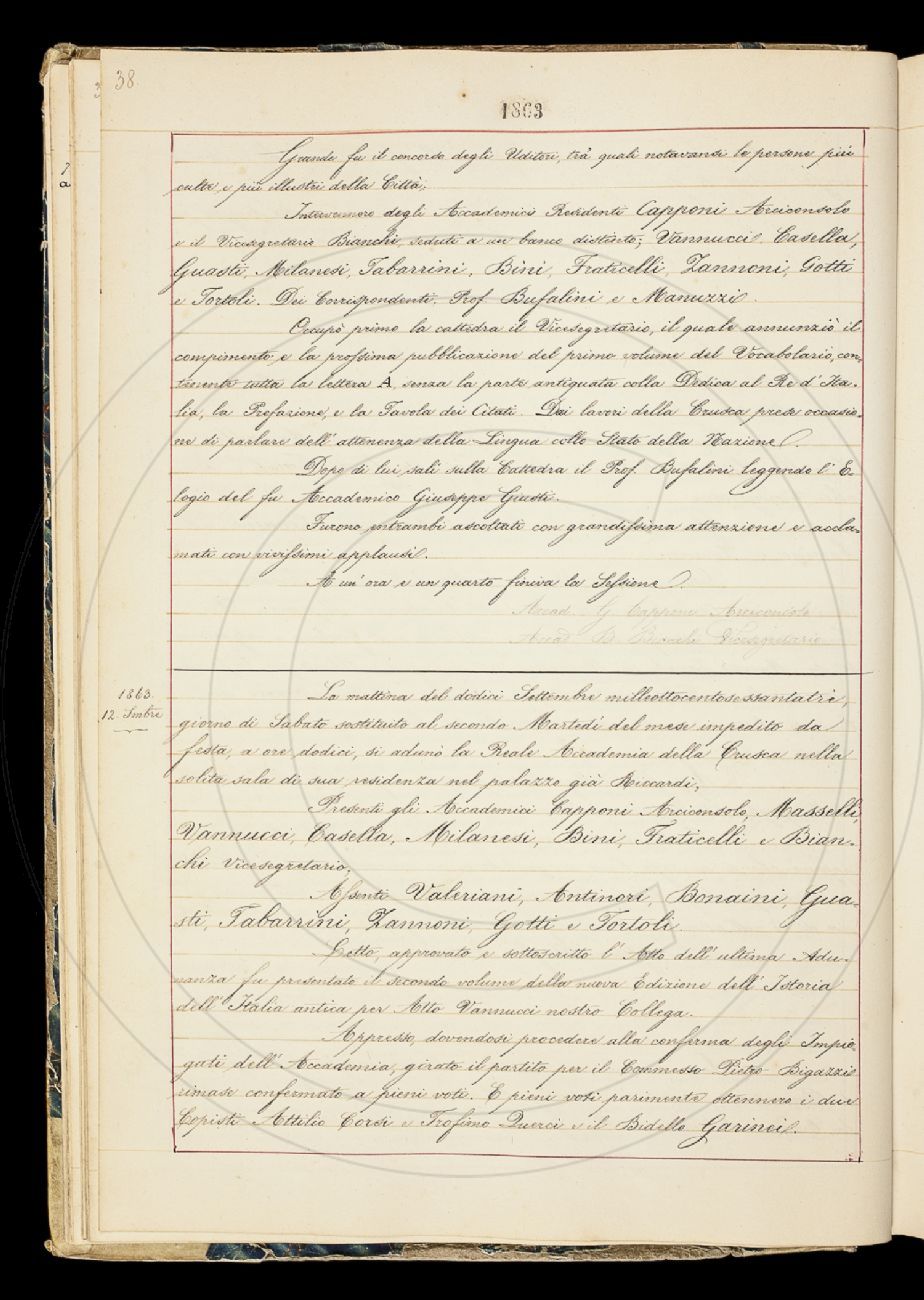 38.
1863
Grande fu il concorso degli Uditori, trà quali notavansi le persone più
culte e più illustri della Città;
Intervennero degli Accademici Residenti Capponi Arciconsolo
e il Vicesegretario Bianchi, seduti a un banco distinto; Vannucci, Casella,
Guasti, Milanesi, Tabarrini, Bini, Fraticelli, Zannoni, Gotti
e Tortoli. Dei Corrispondenti, Prof. Bufalini e Manuzzi.
Occupò primo la cattedra il Vicesegretario, il quale annunziò il
compimento e la prossima pubblicazione del primo volume del Vocabolario, con-
tinente tutta la lettera A, senza la parte antiquata colla Dedica al Re d'Ita-
lia, la Prefazione, e la Tavola dei Citati. Dai lavori della Crusca prese occasio-
ne di parlare dell'attenenza della Lingua collo Stato della Nazione.
Dopo di lui salì sulla Cattedra il Prof. Bufalini leggendo l'E-
logio del fu Accademico Giuseppe Giusti.
Furono entrambi ascoltati con grandissima attenzione e accla-
mati con vivissimi applausi.
A un'ora e un quarto finiva la Sessione.
Accad. G. Capponi Arciconsolo
Accad. B. Bianchi Vicesegretario
1863.
12 Smbre
La mattina del dodici Settembre milleottocentosessantatrè,
giorno di Sabato sostituito al secondo Martedì del mese impedito da
festa, a ore dodici, si adunò la Reale Accademia della Crusca nella
solita sala di sua residenza nel palazzo già Riccardi;
Presenti gli Accademici Capponi Arciconsolo, Masselli,
Vannucci, Casella, Milanesi, Bini, Fraticelli e Bian-
chi Vicesegretario;
Assenti Valeriani, Antinori, Bonaini, Gua-
sti, Tabarrini, Zannoni, Gotti e Tortoli.
Letto, approvato e sottoscritto l'Atto dell'ultima Adu-
nanza fu presentato il secondo volume della nuova Edizione dell'Istoria
dell'Italia antica per Atto Vannucci nostro Collega.
Appresso, dovendosi procedere alla conferma degli Impie-
gati dell'Accademia, girato il partito per il Commesso Pietro Bigazzi
rimase confermato a pieni voti. E pieni voti parimente ottennero i due
Copisti Attilio Corsi e Trofimo Querci e il Bidello Garinei.